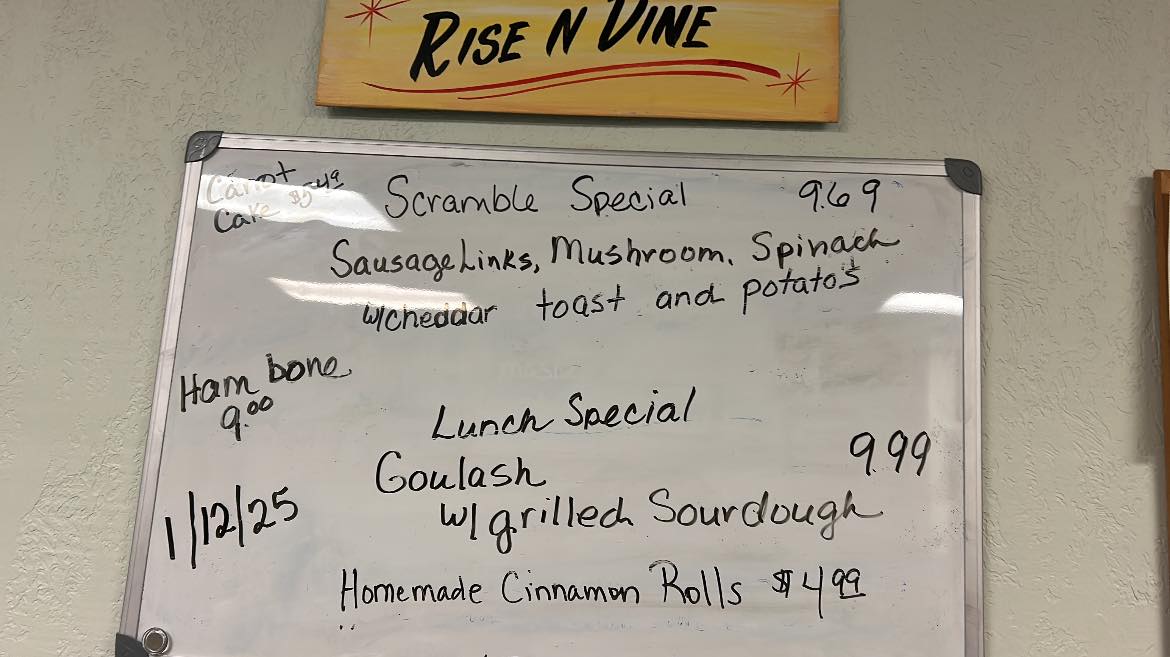 RISE N DINE
Carrot
Cake $5.49
Scramble Special 9.69
Sausage Links, Mushroom, Spinach
w/cheddar toast and potato's
Ham bone
9.00
Lunch Special
Goulash 9.99
w/grilled Sourdough
1/12/25
Homemade Cinnamon Rolls $4.99